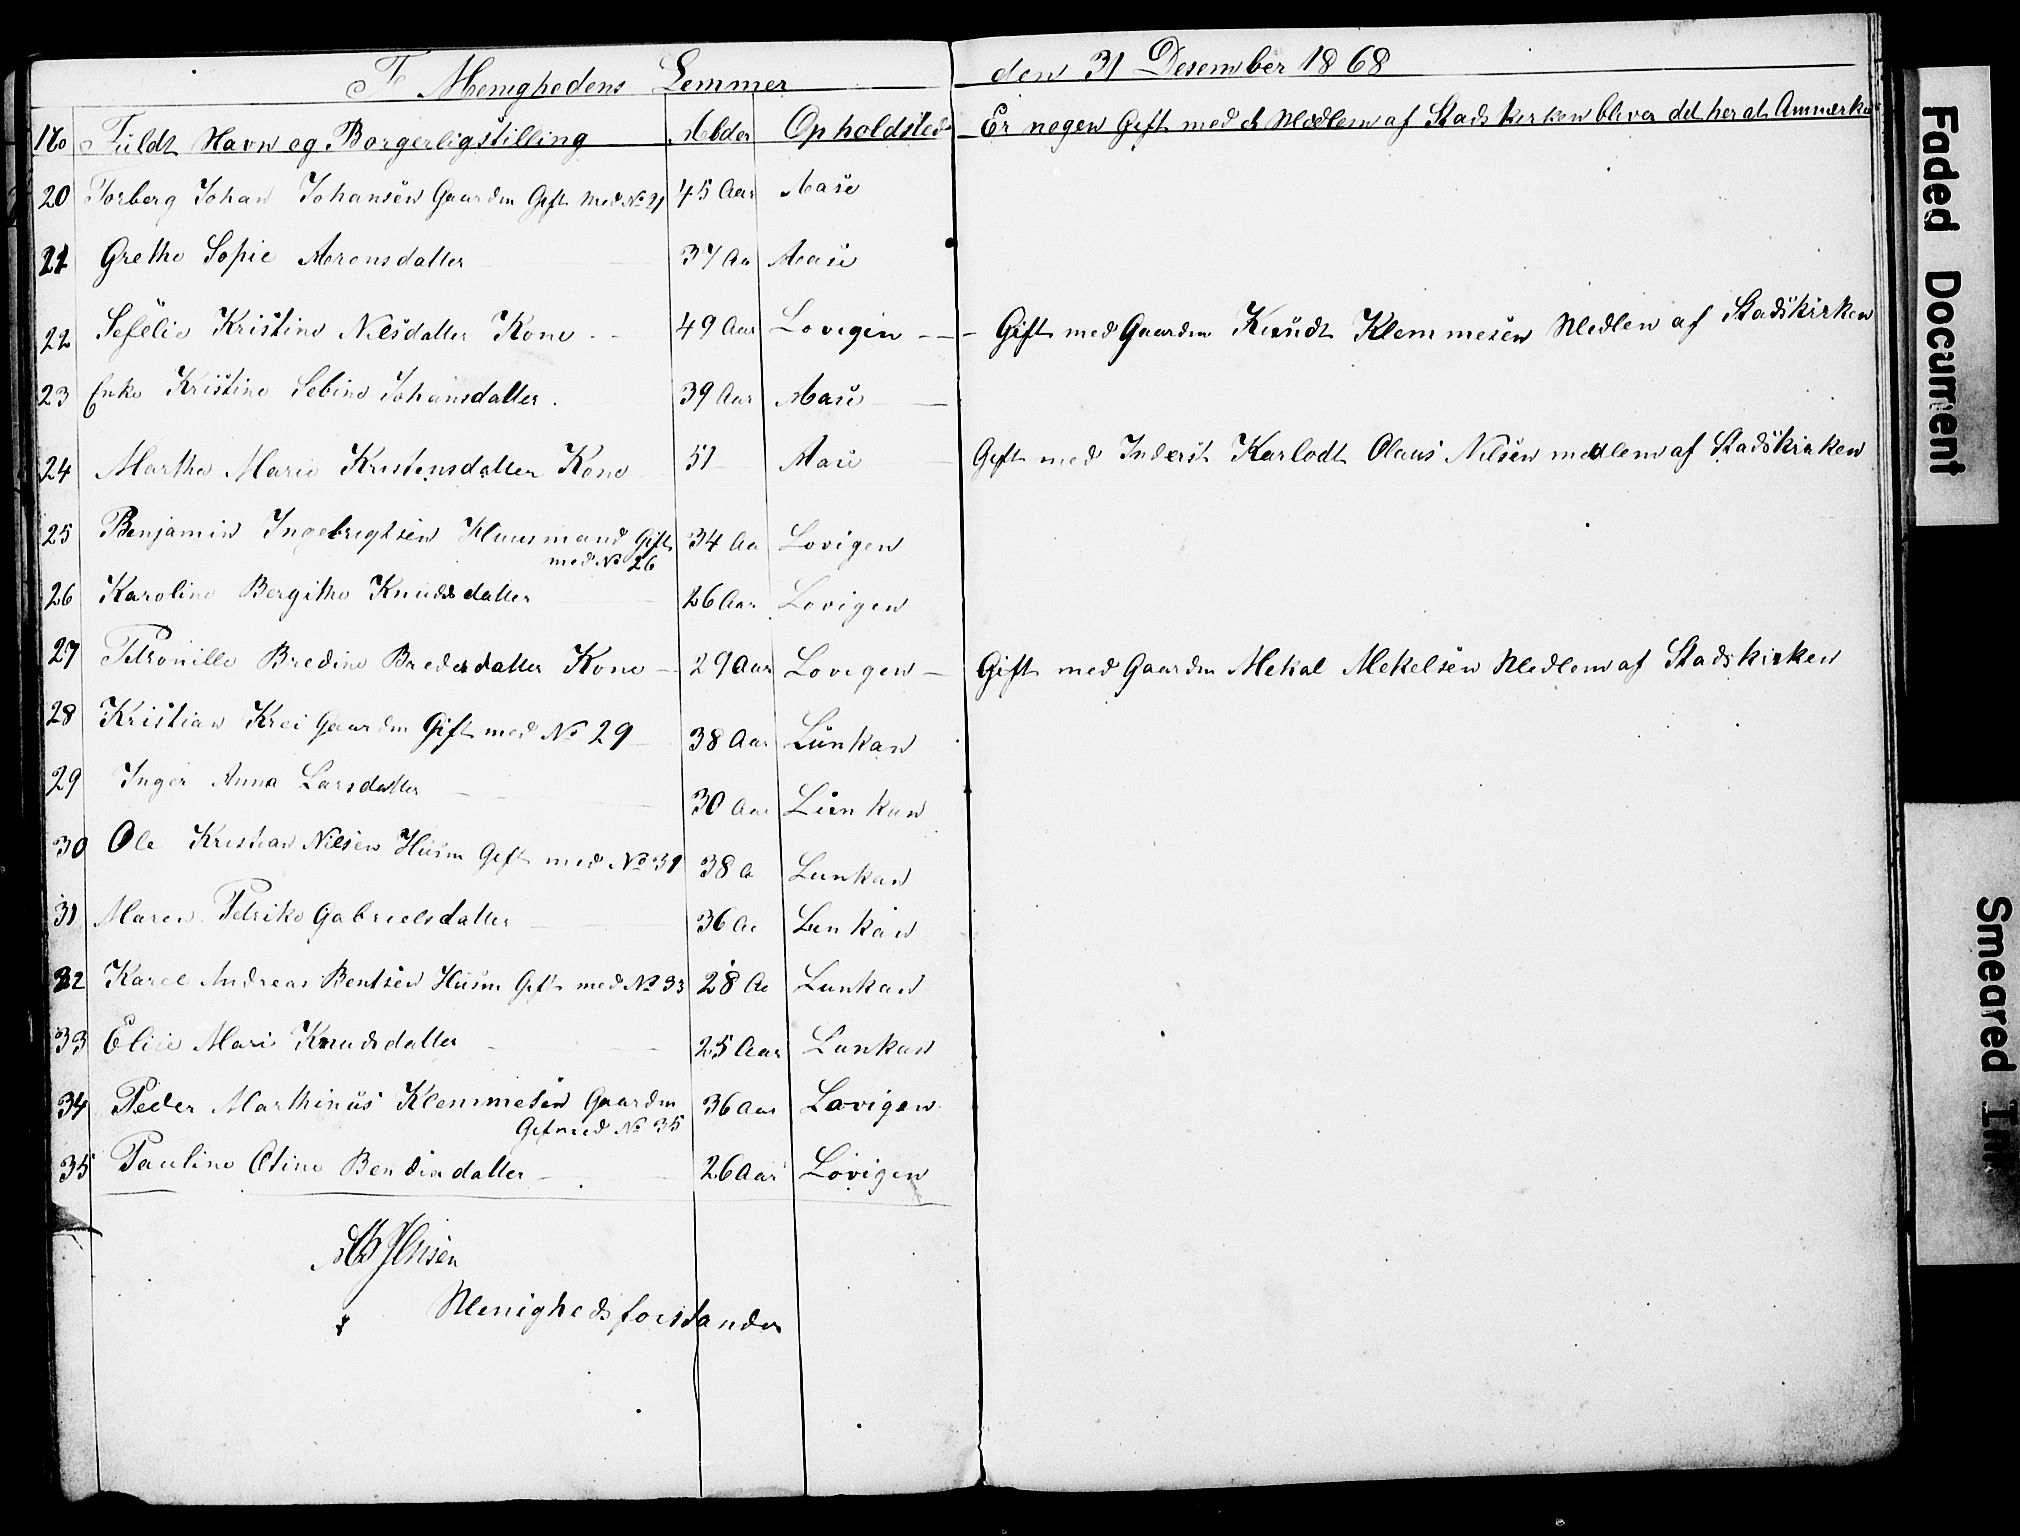 F Menighedens Lemmer den 31 Desember 1868
No Fuldt Navn og Borgerligstilling Alder Opholdsted Er nogen Gift med et Medlem af Stads kirken bliver det her at Anmærke
20 Torberg Johan Johansen Gaardm Gift med No 21 45 Aar Aase
21 Grethe Sopie Aronsdatter 37 Aa Aase
22 Sefelie Kristine Nilsdatter Kone 49 Aar Lovigen Gift med Gaardm Knudt Klemmesen Medlem af Stadskirken
23 Enke Kristine Sebine Johansdatter 39 Aar Aase
24 Marthe Marie Kristensdatter Kone 51 Aase Gift med Inderst Karlodt Olaus Nilsen medlem af Stadskirken
25 Benjamin Ingebrigtsen Huusmand Gift 34 Aa Lovigen
med No 26
26 Karoline Bergithe Knudsdatter 26 Aar Lovigen
27 Petronille Bredine Bredersdatter Kone 29 Aar Lovigen Gift med Gaardm Mekal Mekelsen Medlem af Stadskirken
28 Kristian Krei Gaardm Gift med No 29 38 Aar Lunkan
29 Inger Anna Larsdatter 30 Aa Lunkan
30 Ole Kristian Nilsen Husm Gift med No 31 38 A Lunkan
31 Maren Petrike Gabrielsdatter 36 Aa Lunkan
32 Karel Andreas Bentsen Husm Gift med No 33 28 Aa Lunkan
33 Elie Mari Knudsdatter 25 Aar Lunkan
34 Peder Marthinus Klemmesen Gaardm 36 Aar Lovigen
Gif med No 35
35 Pauline Oline Bendixdatter 26 Aar Lovigen
Menighedsforstander
Faded Document
Smeared Ink